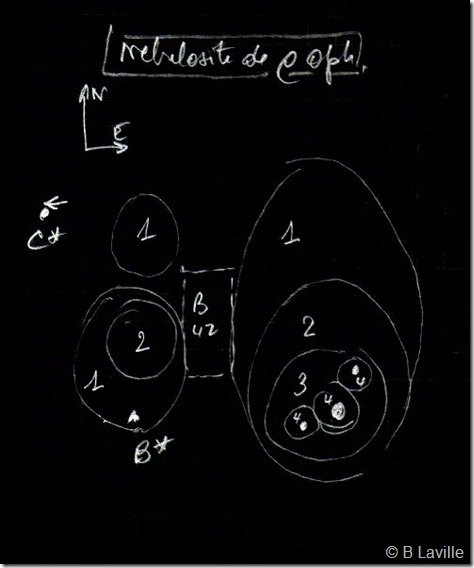 Nebulosite de ρ oph.
N
E
1
1
C*
B
42
2
2
1
3
4
4
4
B*
© B Laville